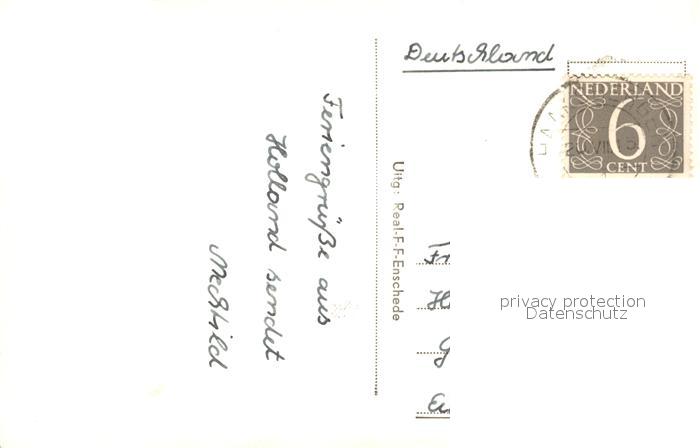 Deutschland
NEDERLAND
6
CENT
Feriengrüße aus
Holland sendet
Mechtild
Uitg: Real-F-F-Enschede
privacy protection
Datenschutz